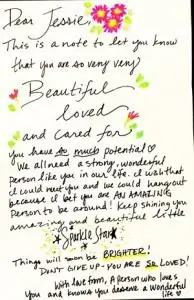 Dear Jessie,
This is a note to let you know
that you are so very very
Beautiful
loved
and cared for
You have so much potential ♡
We all need a strong, wonderful
Person like you in our life. I wish that
I could meet you and we could hang out
because I bet you are AN AMAZING
Person to be around! Keep shining you
amazing and beautiful little
☆ Sparkle Star ☆
Things will soon be BRIGHTER!
DON'T GIVE UP - YOU ARE SO LOVED!
With love from, A person who loves
You and knows you deserve a wonderful
life ♡